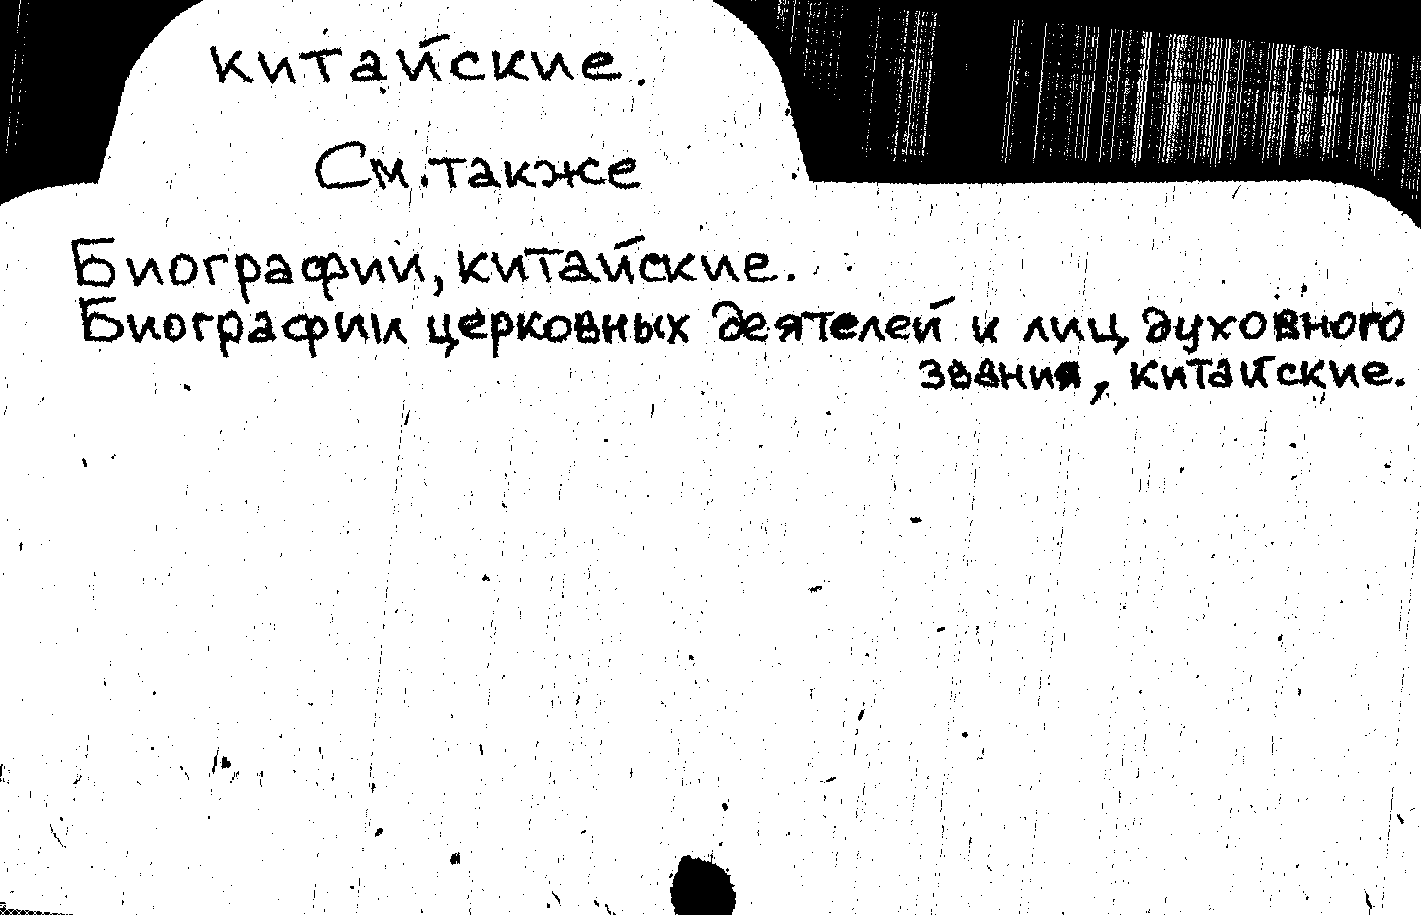 китайские.
См. также
Биографии, китайские.
Биографии церковных деятелей и лиц духовного
звания, китайские.